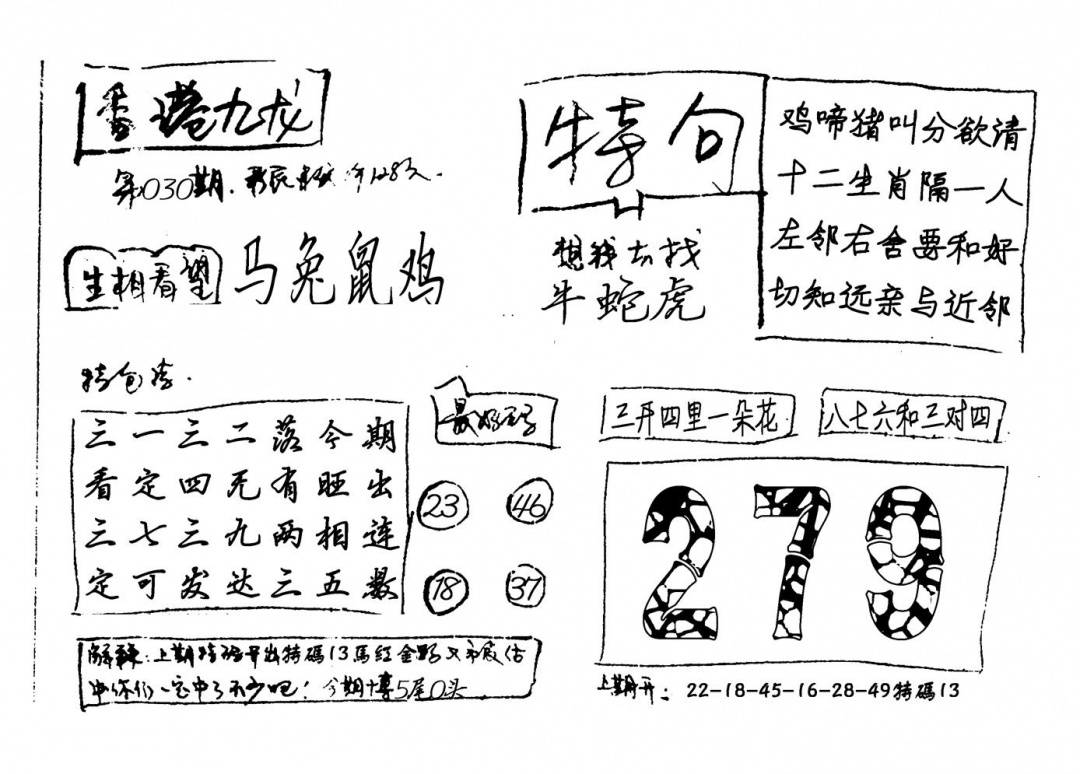 香港九龙
第030期.
生相看望
马兔鼠鸡
特句
想我去找
牛蛇虎
鸡啼猪叫分欲请
十二生肖隔一人
左邻右舍要和好
切知远亲与近邻
特包
三一三二落今期
看定四尾有旺出
三七三九两相连
定可发达三五数
23
46
18
37
三开四里一朵花
八七六和三对四
279
解释：上期特码开出特碼13馬紅金野又
中你们一定中了不少吧！今期博5尾0头
上期开：22-18-45-16-28-49特碼13